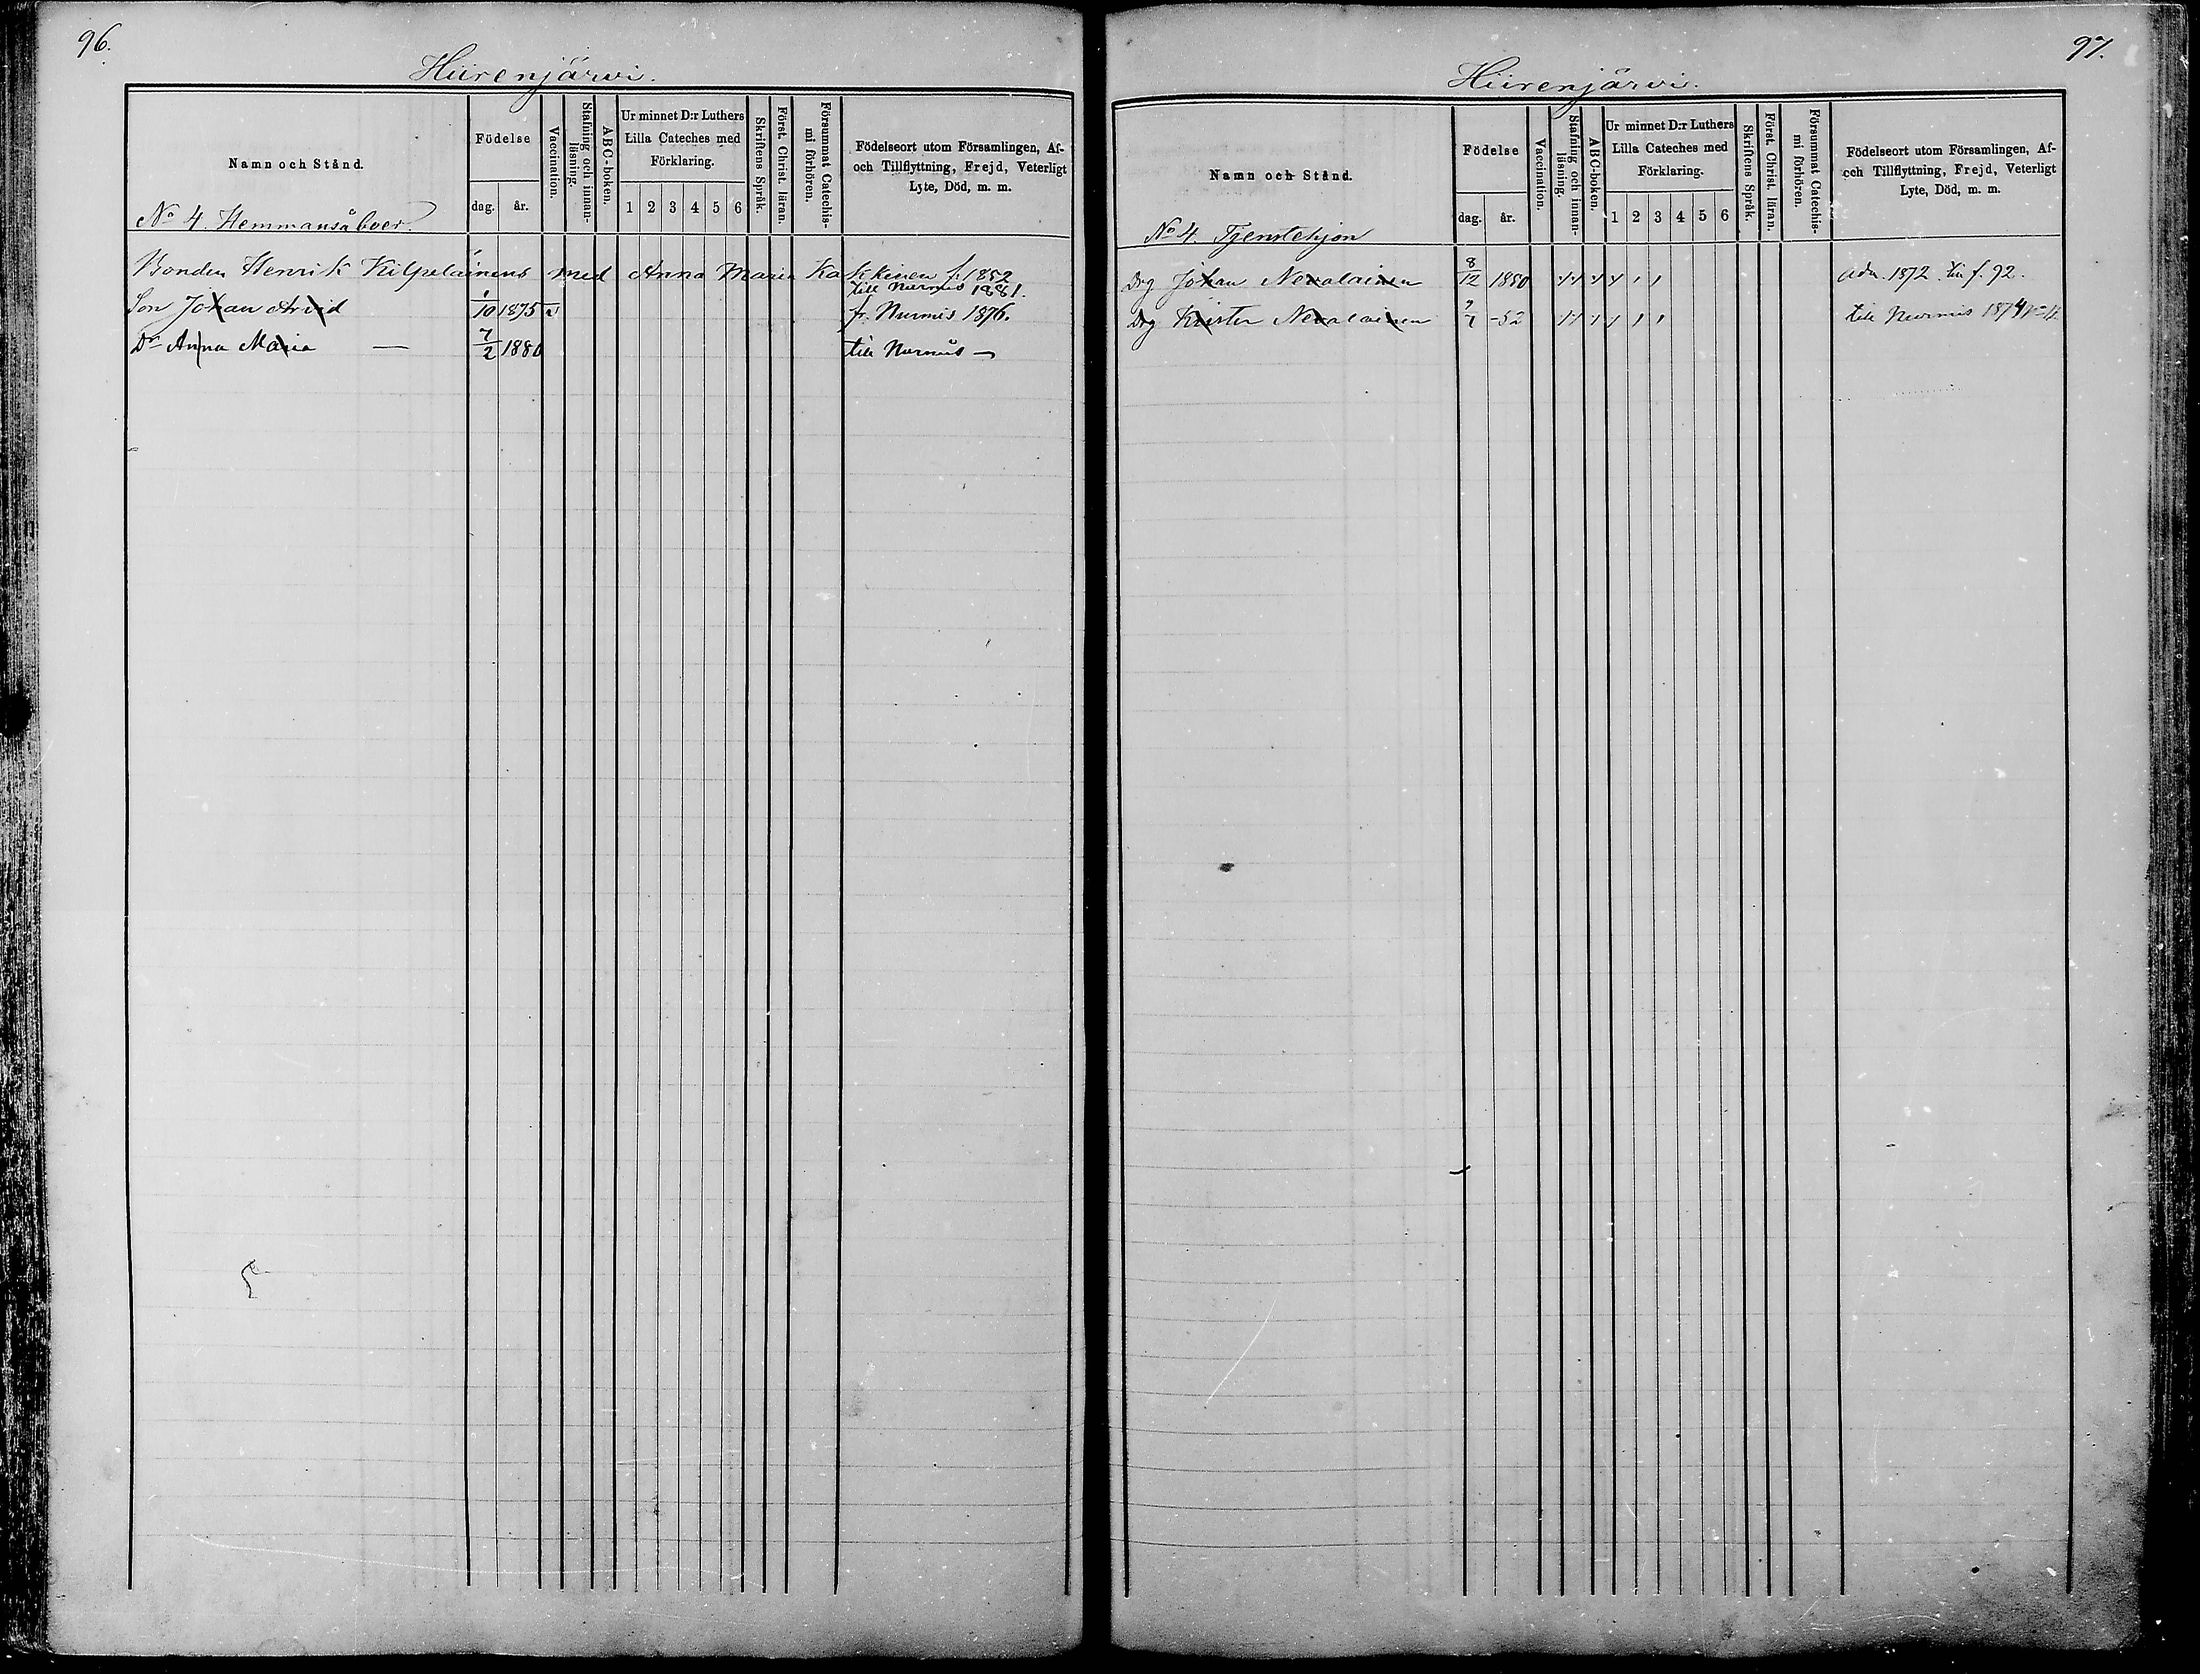 96.
Hiirenjärvi.
Namn och Stånd.
Födelse
dag. år.
Vaccination.
Stafning och innan-
läsning.
ABC-boken.
Ur minnet D:r Luthers
Lilla Cateches med
Förklaring.
1 2 3 4 5 6
Skriftens Språk.
Först. Christ. läran.
Försummat Catechis-
mi förhören.
Födelseort utom Församlingen, Af-
och Tillflyttning, Frejd, Veterligt
Lyte, Död, m. m.
No 4. Hemmansåboer.
Bonden Henrik Kilpeläinens med Anna Maria Kakkinen f. 1852
till Nurmis 1881.
Son Johan Arvid 1/10 1875 v fr. Nurmis 1876.
Dr Anna Maria — 7/2 1880 till Nurmis —
97.
Hiirenjärvi.
Namn och Stånd.
Födelse
dag. år.
Vaccination.
Stafning och innan-
läsning.
ABC-boken.
Ur minnet D:r Luthers
Lilla Cateches med
Förklaring.
1 2 3 4 5 6
Skriftens Språk.
Först. Christ. läran.
Försummat Catechis-
mi förhören.
Födelseort utom Församlingen, Af-
och Tillflyttning, Frejd, Veterligt
Lyte, Död, m. m.
No 4. Tjenstehjon
Drg Johan Nevalainen 8/12 1850 adm. 1872. f. 92.
Drg Krister Nevalainen -52 till Nurmis 1874